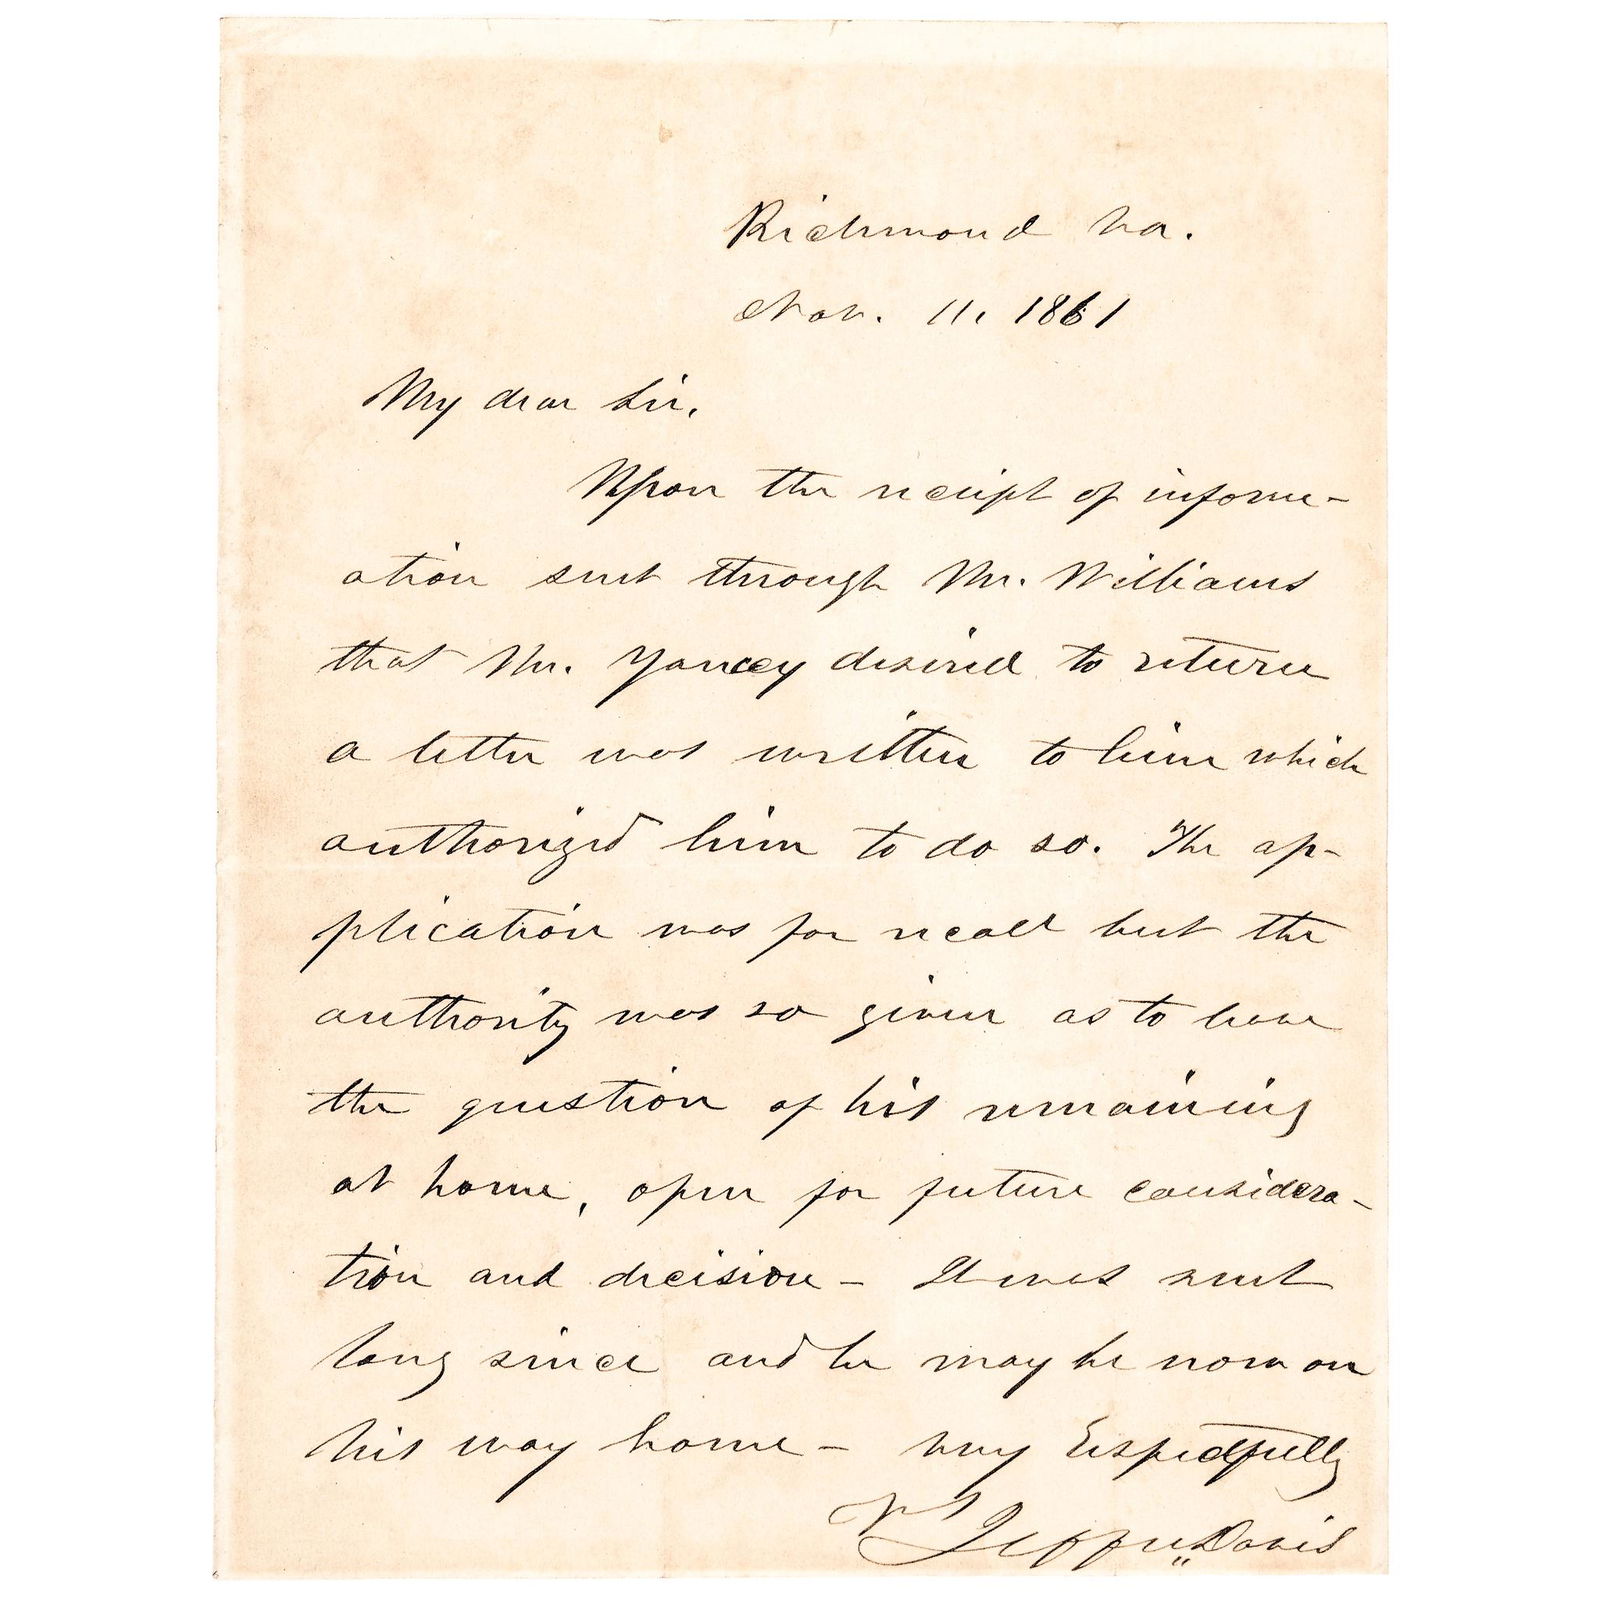 Richmond Va.
Nov. 11. 1861
My dear Sir,
Upon the receipt of inform-
ation sent through Mr. Williams
that Mr. Yancey desired to return
a letter was written to him which
authorized him to do so. The ap-
plication was for recall but the
authority was so given as to leave
the question of his remaining
at home, open for future considera-
tion and decision - It was sent
long since and he may be now on
his way home - very Respectfully
Yrs Jeffn. Davis